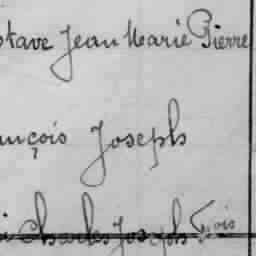 stave Jean Marie Pierre
ançois Joseph
i Charles Joseph Fois